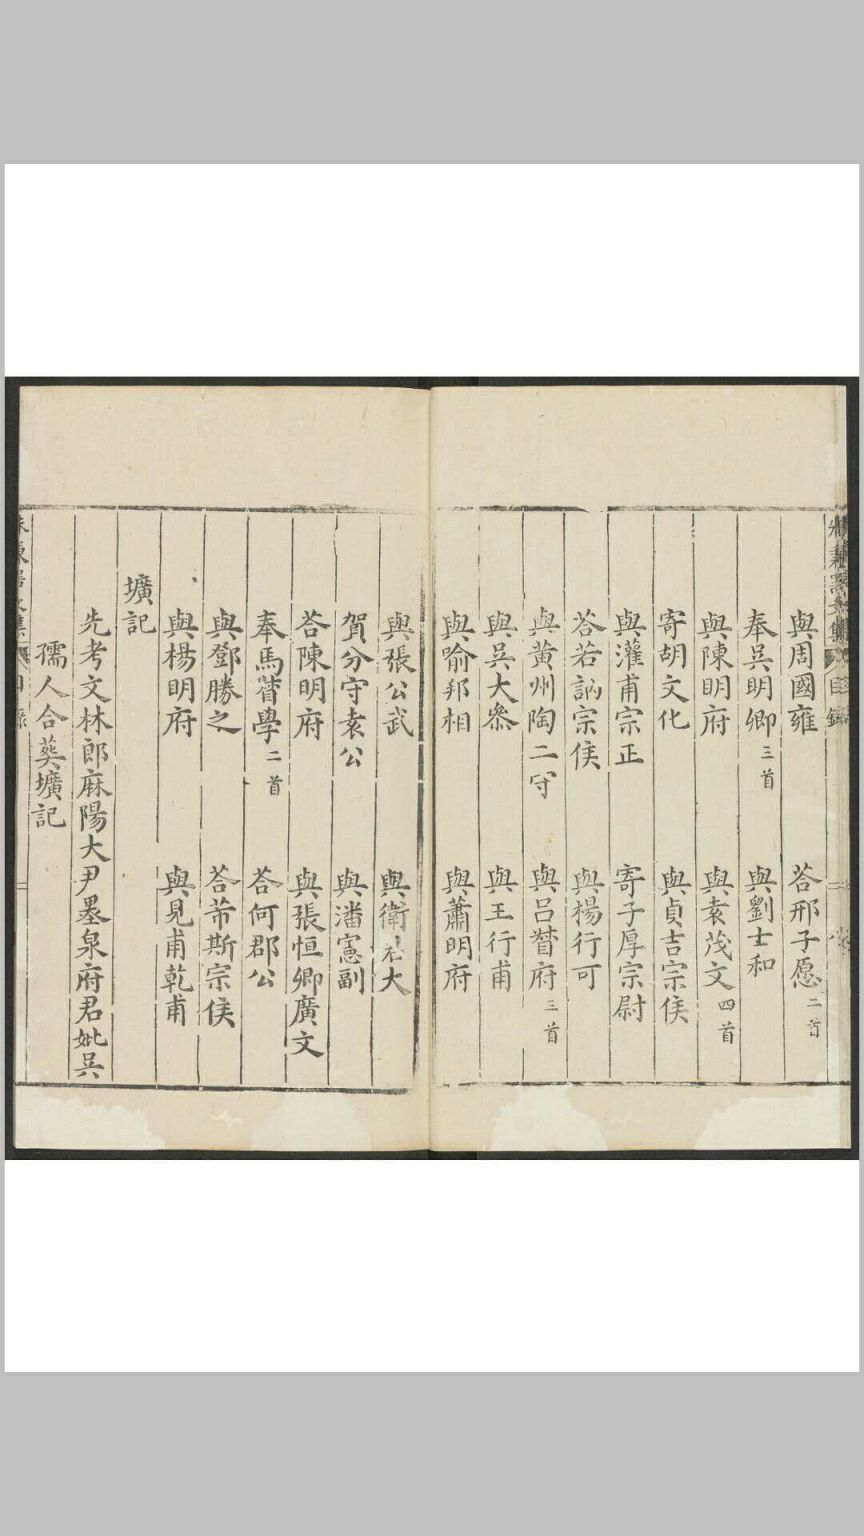 與周國雍 答邢子愿二首
奉吳明卿三首 與劉士和
與陳明府 與袁茂文四首
寄胡文化 與貞吉宗侯
與灌甫宗正 寄子厚宗尉
答若訥宗侯 與楊行可
與黃州陶二守 與呂督府三首
與吳大叅 與王行甫
與喻邦相 與蕭明府
與張公武 與衛大
賀分守袁公 與潘憲副
答陳明府 與張恒卿廣文
奉馬督學二首 答何郡公
與鄧勝之 答芾斯宗侯
與楊明府 與見甫乾甫
壙記
先考文林郎麻陽大尹墨泉府君妣吳
孺人合葬壙記